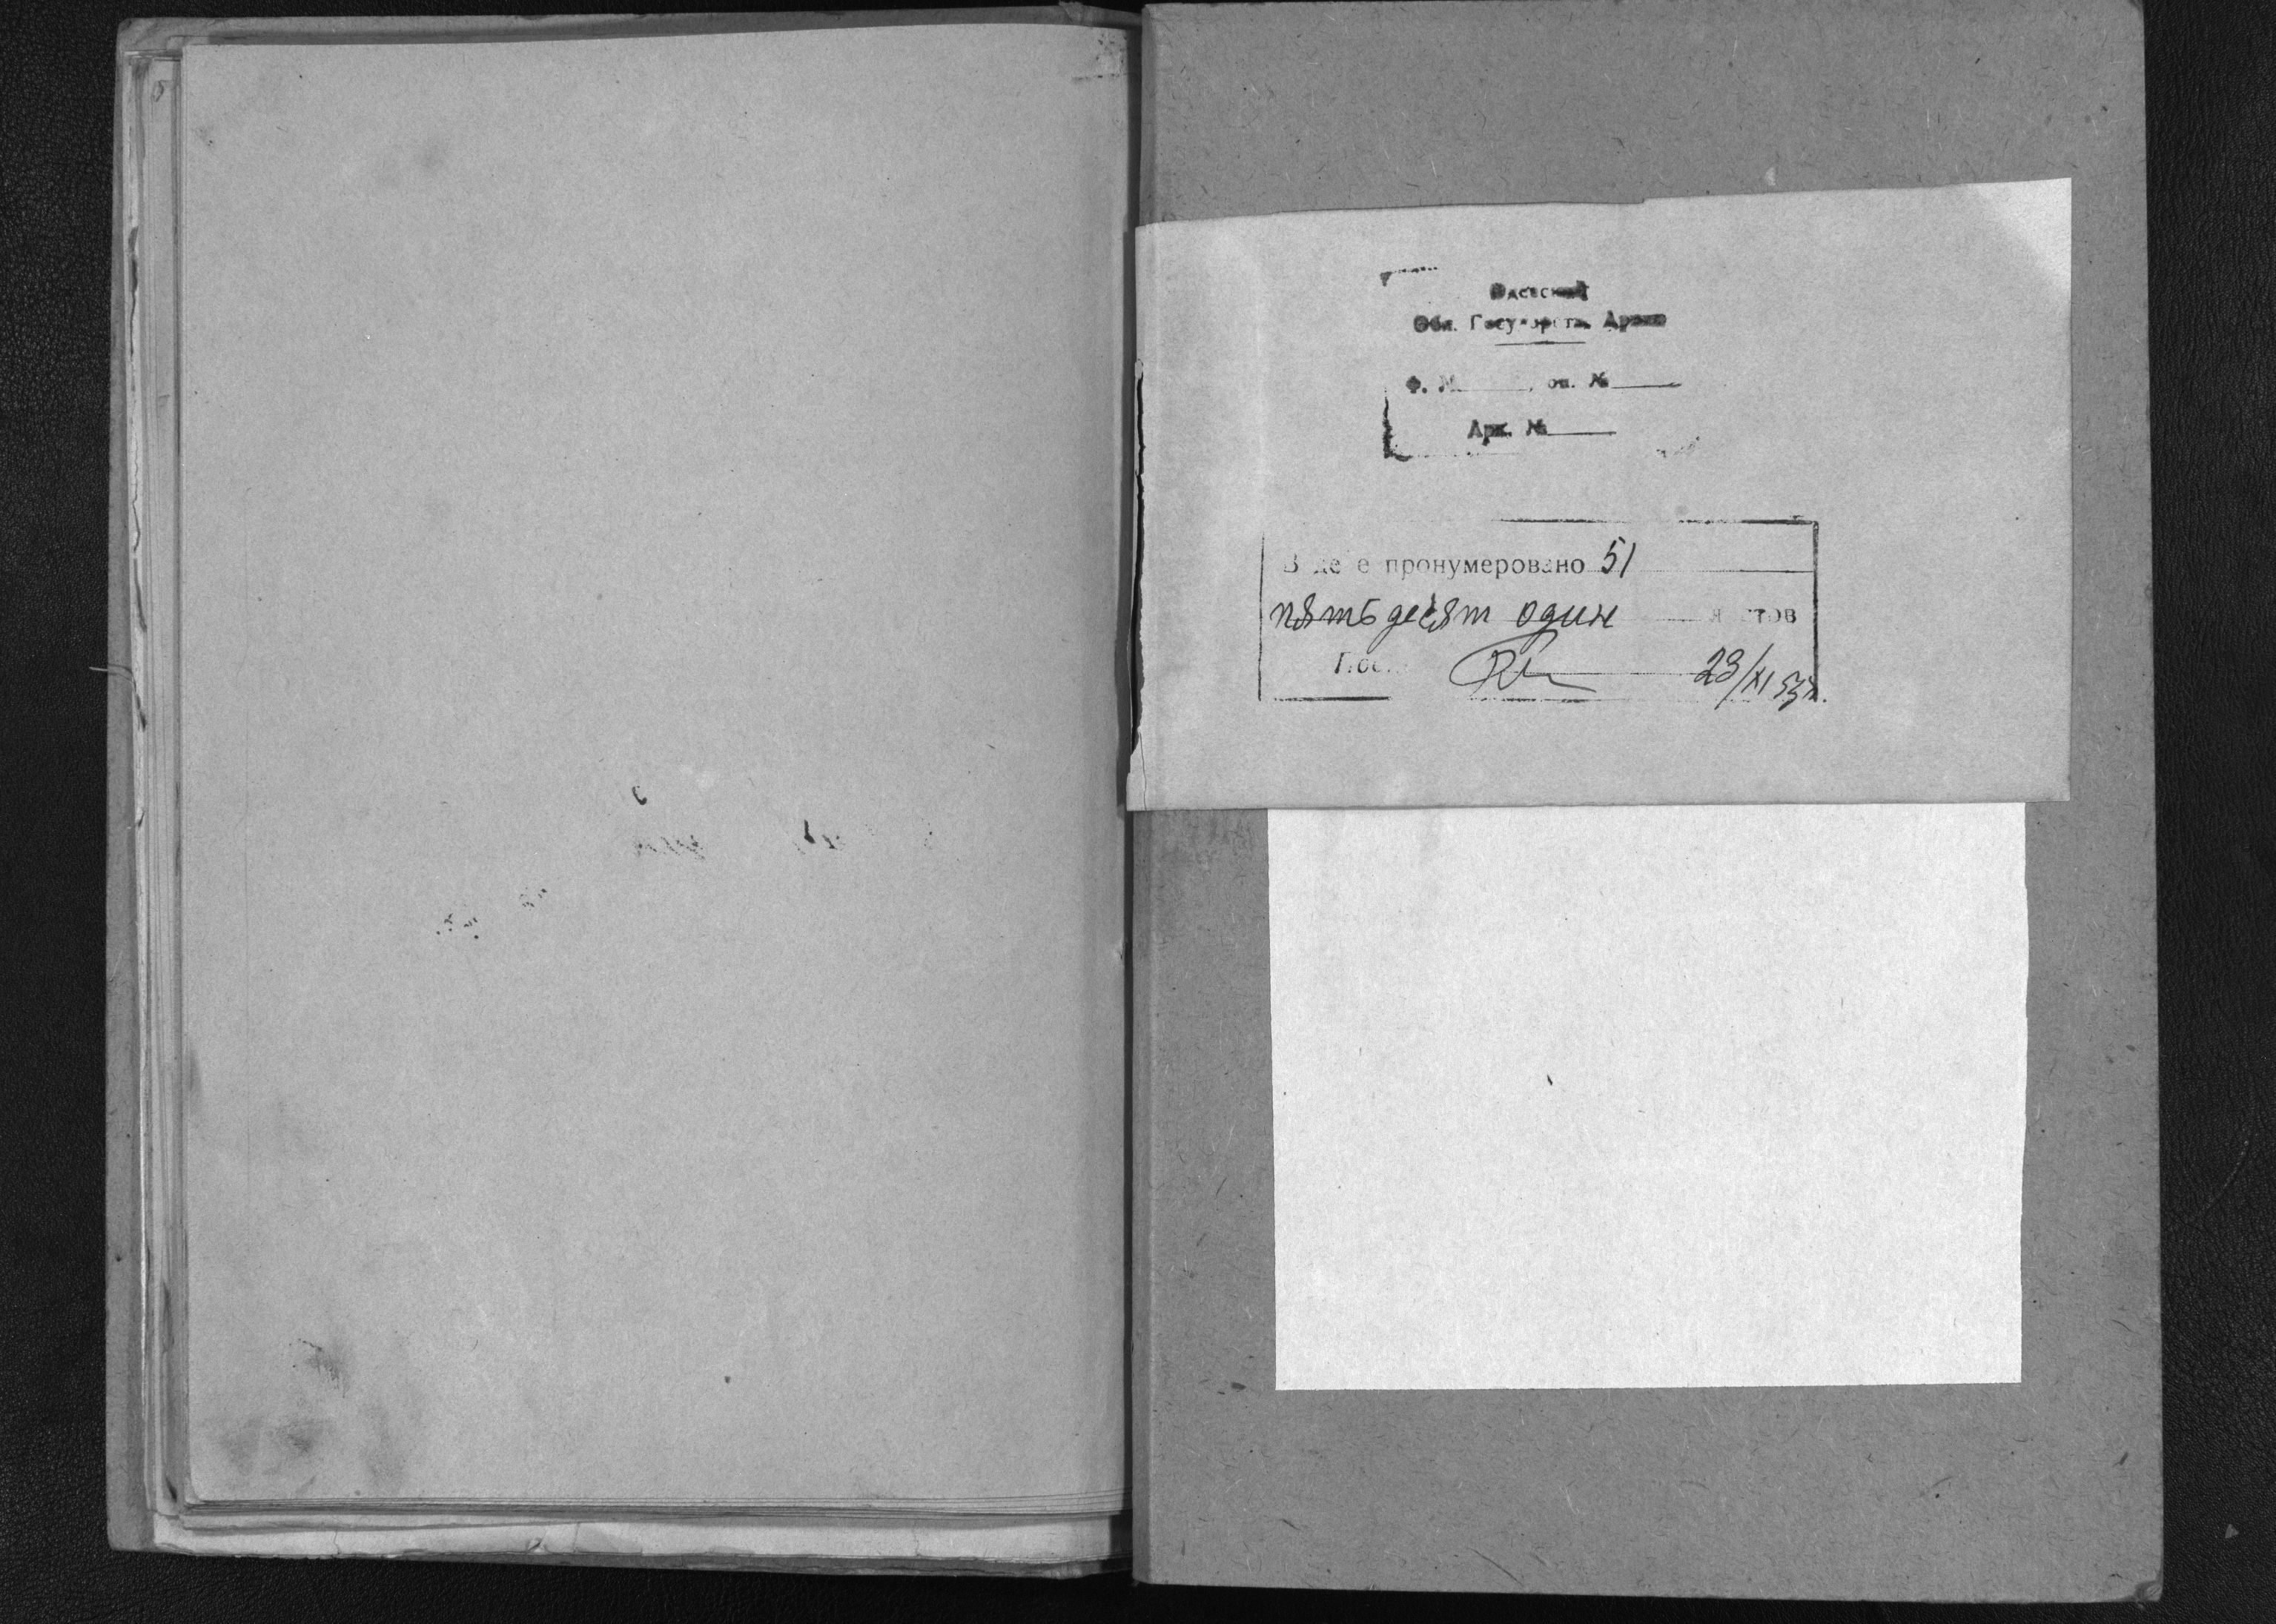 Одесский
Обл. Государств. Архив
Ф. № , оп. №
Арх. №
В деле пронумеровано 51
пятьдесят один листов
28/XI 53г.